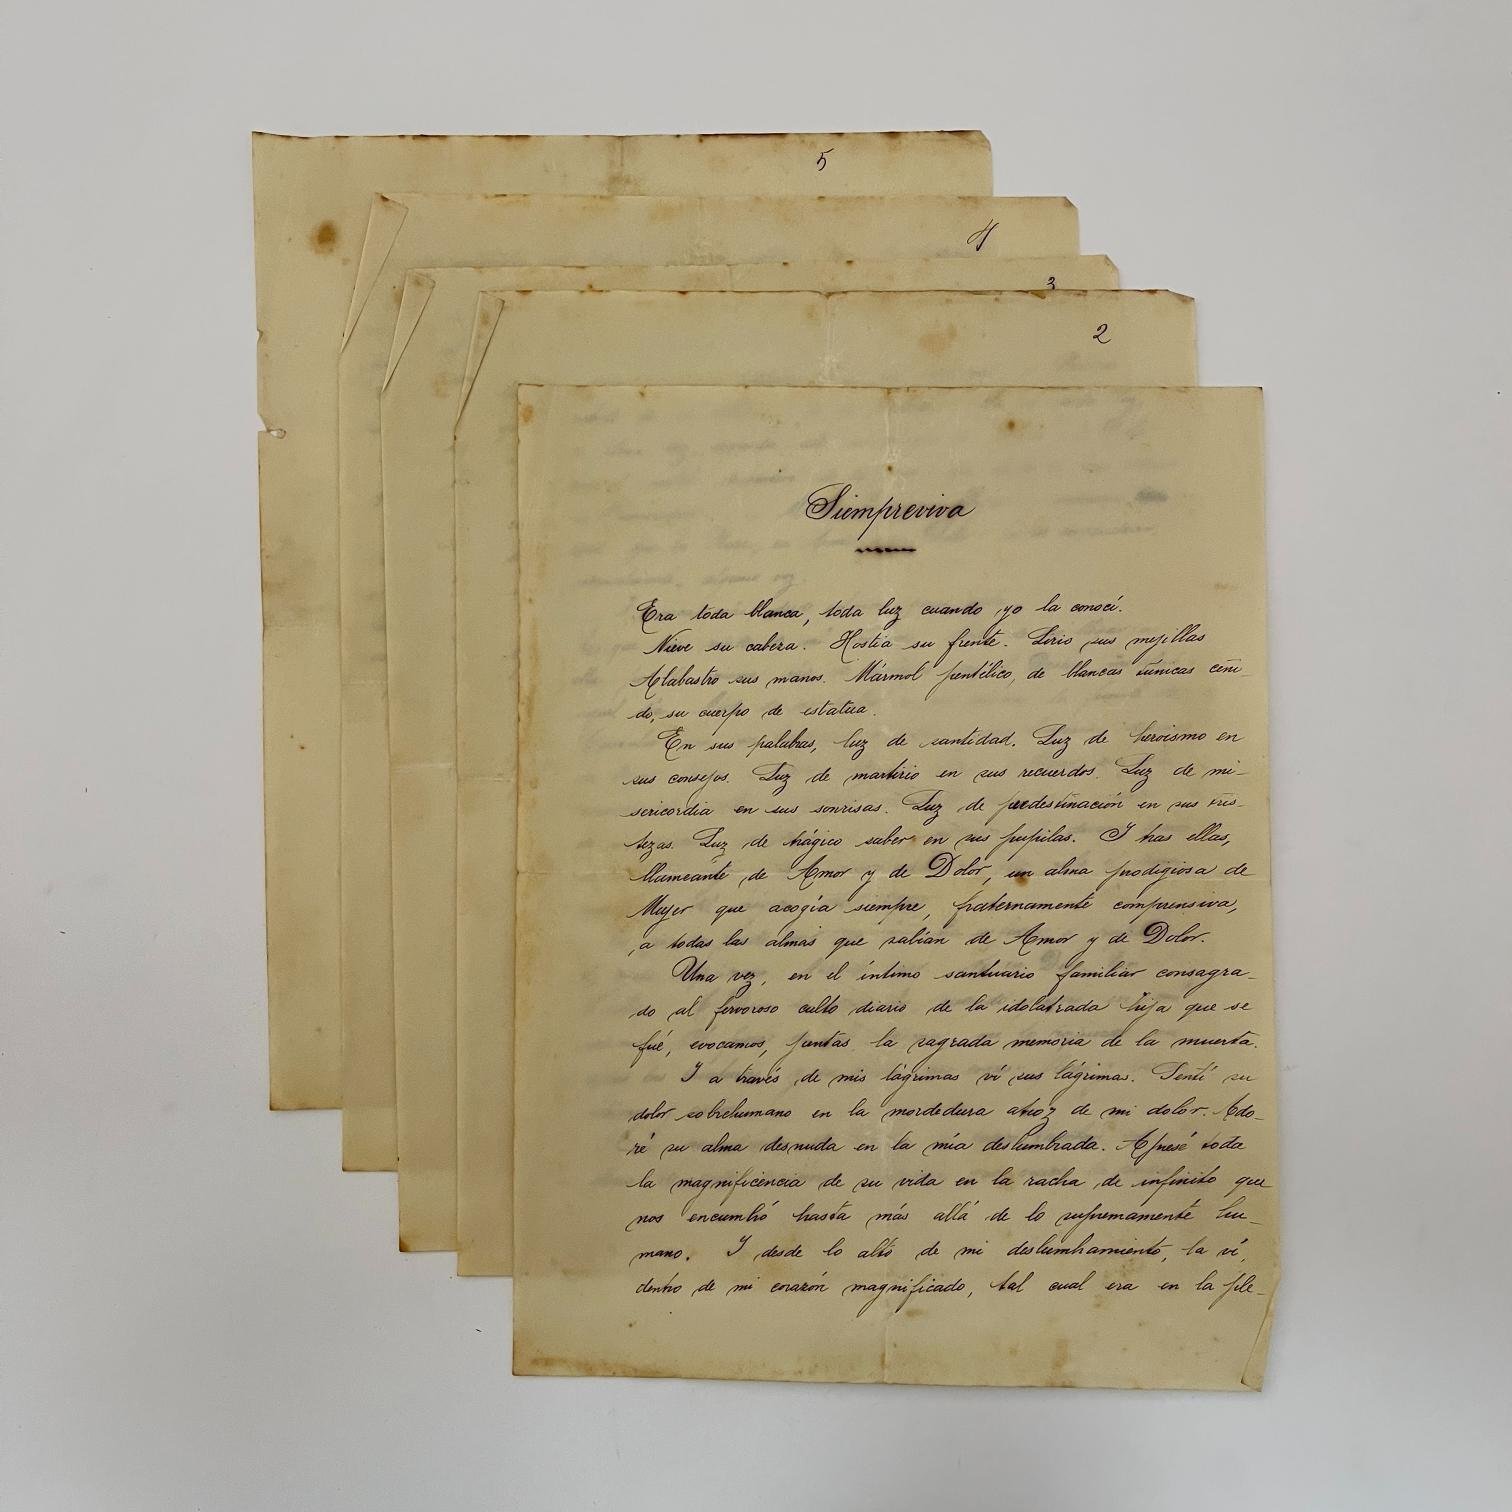 5
4
3
2
Siempreviva
Era toda blanca, toda luz cuando yo la conocí.
Nieve su cabeza. Hostia su frente. Lirio sus mejillas
Alabastro sus manos. Mármol pentélico, de blancas túnicas ceñi-
do, su cuerpo de estatua.
En sus palabras, luz de santidad. Luz de heroismo en
sus consejos. Luz de martirio en sus recuerdos. Luz de mi-
sericordia en sus sonrisas. Luz de predestinación en sus tris-
tezas. Luz de trágico saber en sus pupilas. I tras ellas,
llameante de Amor y de Dolor, un alma prodigiosa de
Mujer que acogía siempre, fraternamente comprensiva,
a todas las almas que sabían de Amor y de Dolor.
Una vez, en el íntimo santuario familiar consagra-
do al fervoroso culto diario de la idolatrada hija que se
fué, evocamos, juntas la sagrada memoria de la muerta.
I a través de mis lágrimas ví sus lágrimas. Sentí su
dolor sobrehumano en la mordedura atroz de mi dolor. Ado-
ré su alma desnuda en la mía deslumbrada. Apresé toda
la magnificencia de su vida en la racha de infinito que
nos encumbró hasta más allá de lo supremamente hu-
mano. I desde lo alto de mi deslumbramiento, la ví,
dentro de mi corazón magnificado, tal cual era en la ple-